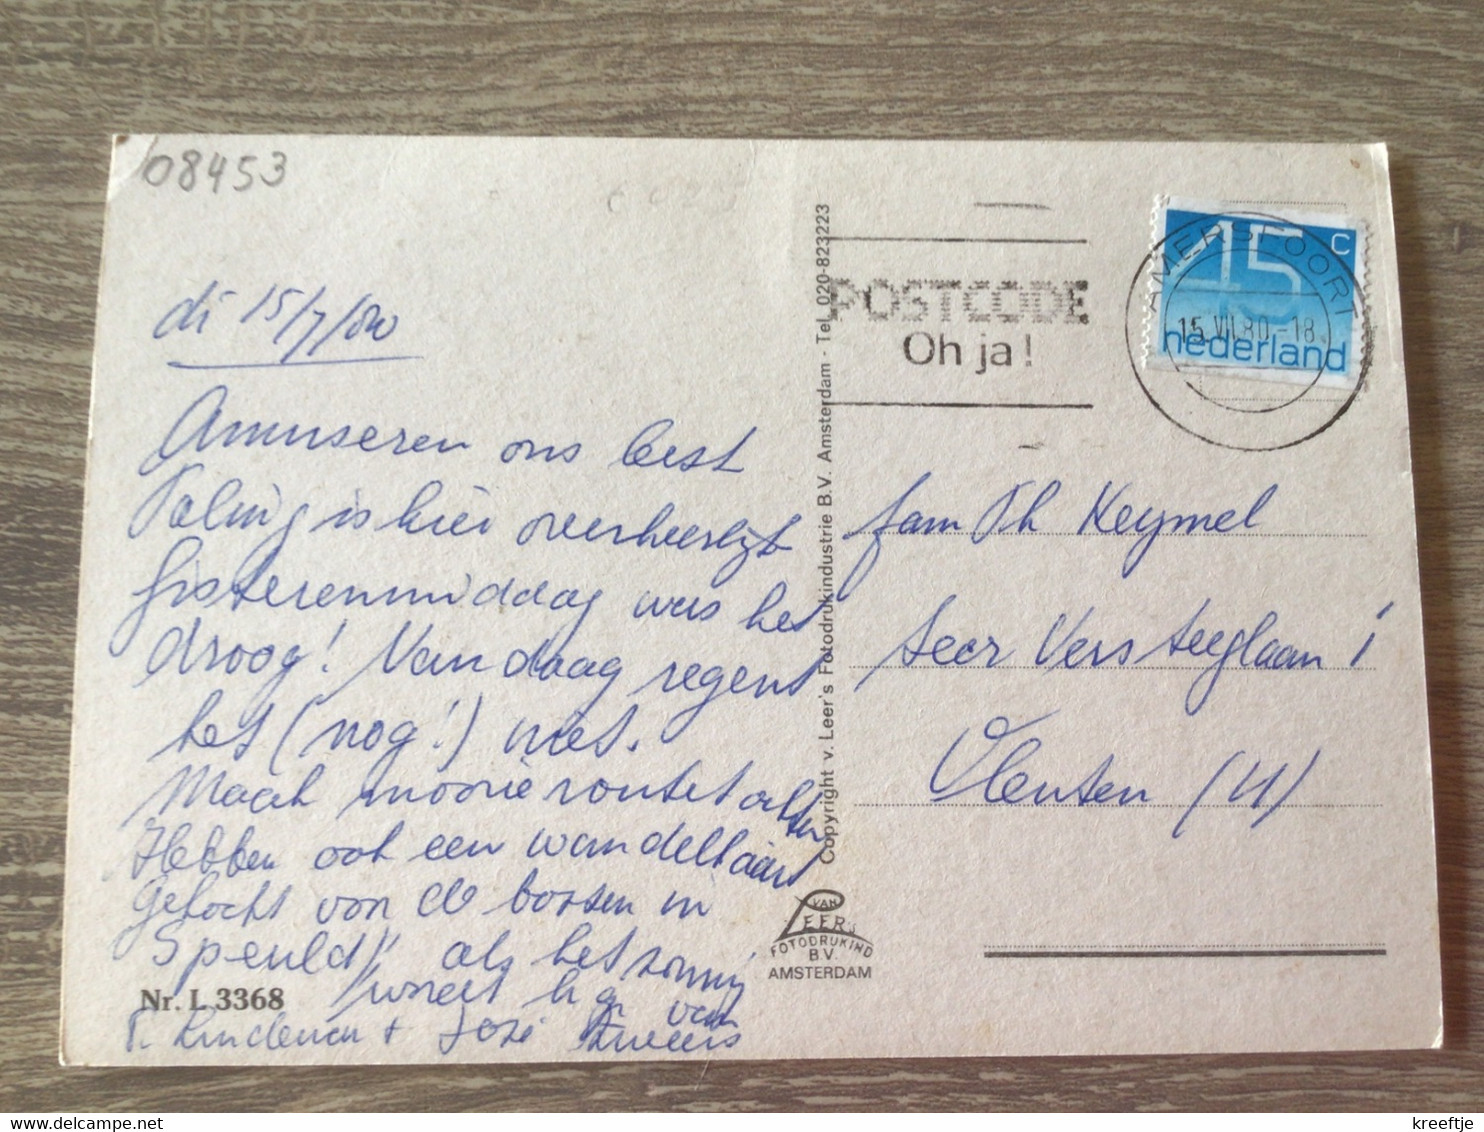 08453
di 15/7/80
Amuseren ons best
Paling is hier overheerlijk
Gisterenmiddag was het
droog! Vandaag regent
het (nog!) niet.
Maak mooie
Hebben ook een wandelkaart
gekocht van de bossen in
Speuld! als het zonnig
wordt h. gr. van
+ José
Nr. L 3368
Copyright v. Leer's Fotodrukindustrie B.V. Amsterdam - Tel. 020-823223
VAN
LEER'S
FOTODRUKIND
B.V.
AMSTERDAM
POSTCODE
Oh ja!
AMERSFOORT
15.VII.80.-18
45 c
nederland
fam Th Keymel
seer Versteeglaan 1
Vleuten (U)
kreeftje